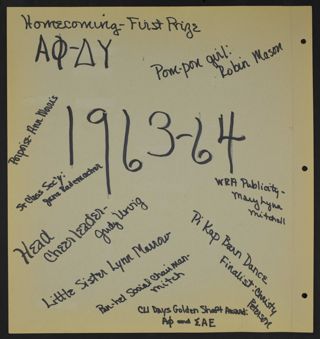 Homecoming - First Prize
ΑΦ-ΔΥ
Pom-pon girl:
Robin Mason
Porpoise - Ann Morris
1963-64
Sr Class Sec'y:
Jane Rademacher
WRA Publicity -
Mary Lynn
Mitchell
Head
Cheerleader -
Judy
Pi Kap Barn Dance
Finalist: Christy
Peterson
Little Sister Lynn Marrow
Pan-hel Social Chairman -
Mitch
CU Days Golden Shaft Award:
ΑΦ and ΣΑΕ